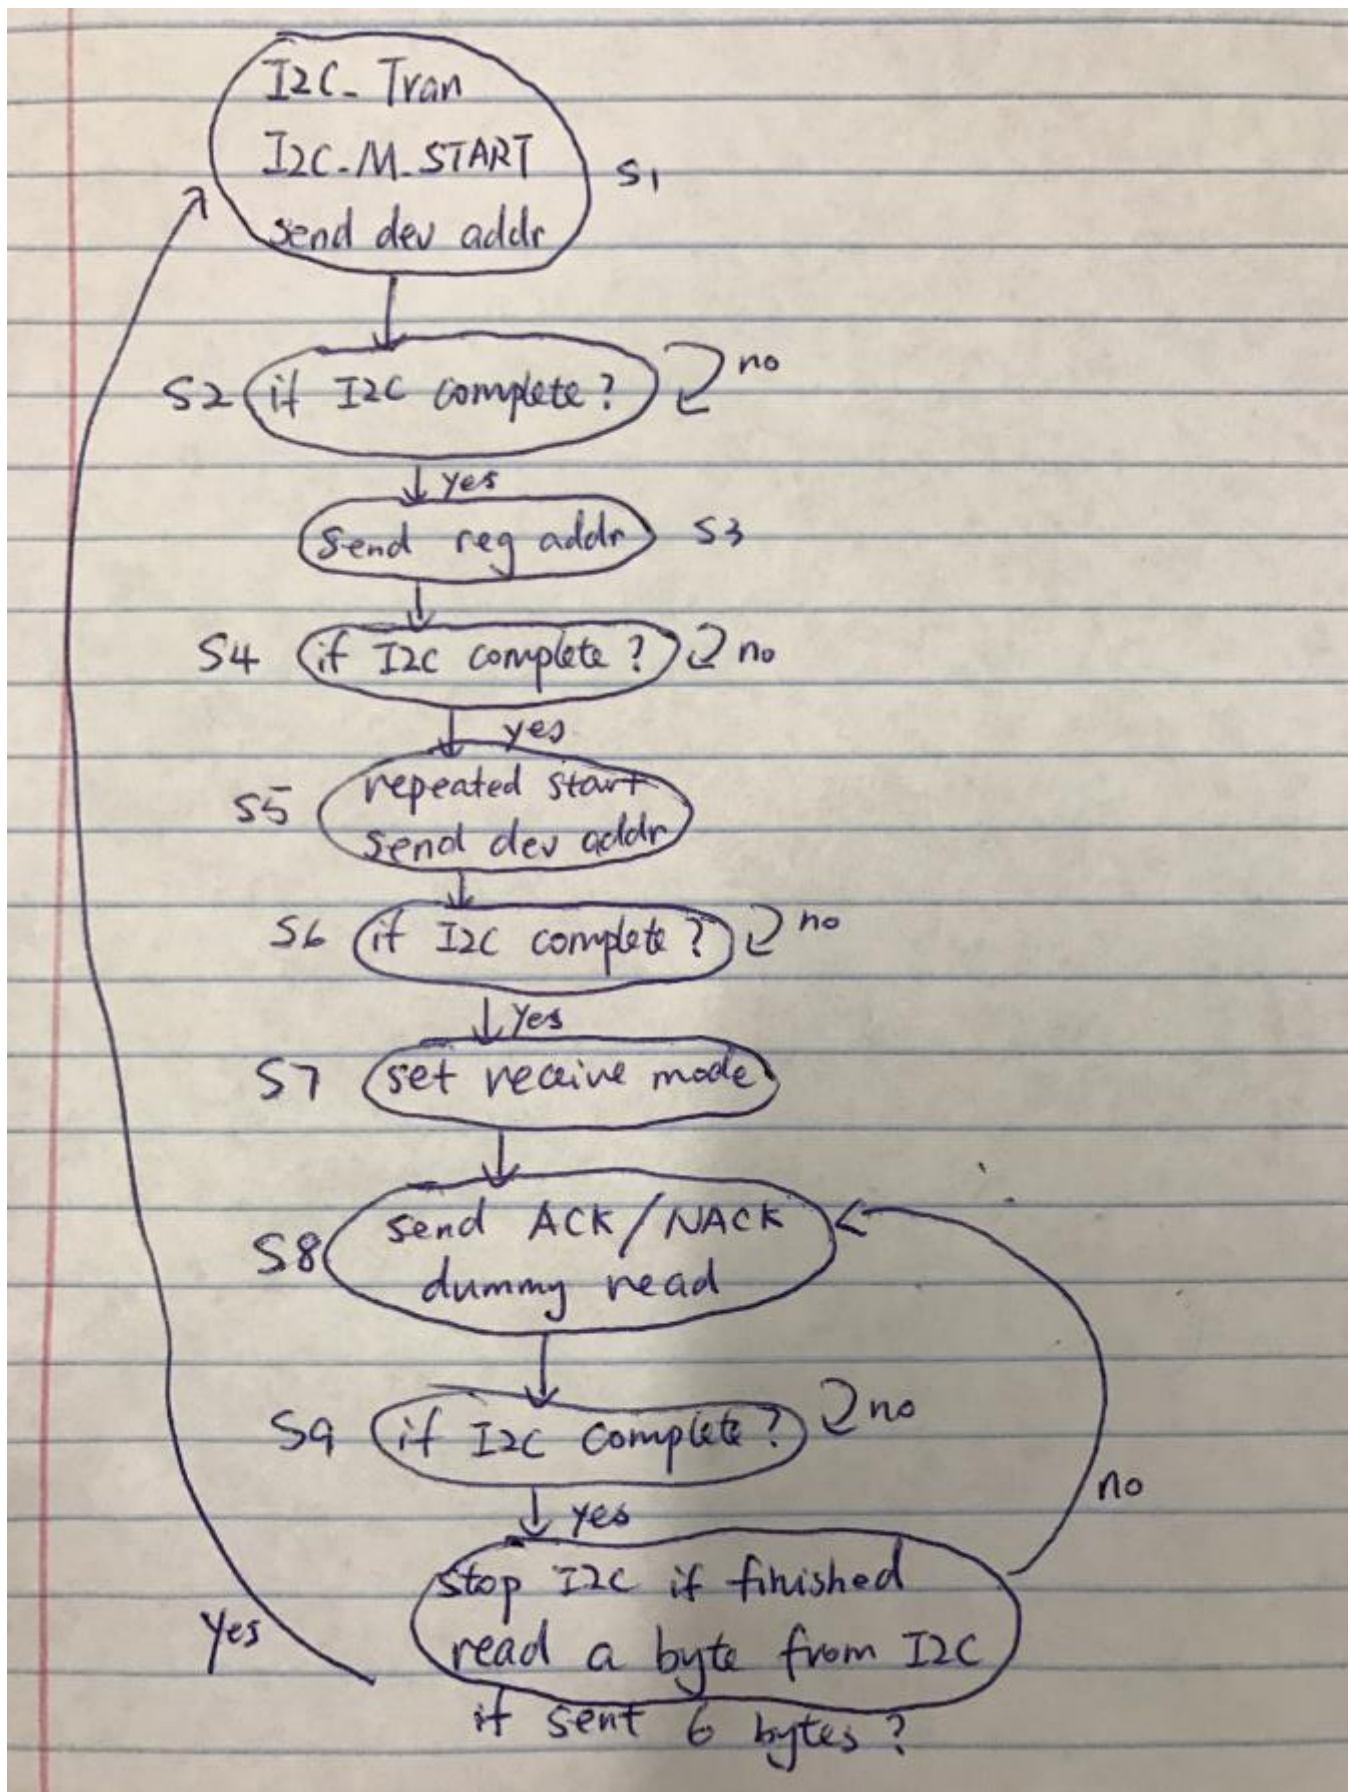 I2C_Tran
I2C_M_START
send dev addr
S1
S2 if I2C complete? no
yes
send reg addr S3
S4 if I2C complete? no
yes
S5 repeated start
send dev addr
S6 if I2C complete? no
Yes
S7 set receive mode
S8 send ACK/NACK
dummy read
S9 if I2C complete? no
yes
no
stop I2C if finished
Yes
read a byte from I2C
if sent 6 bytes?